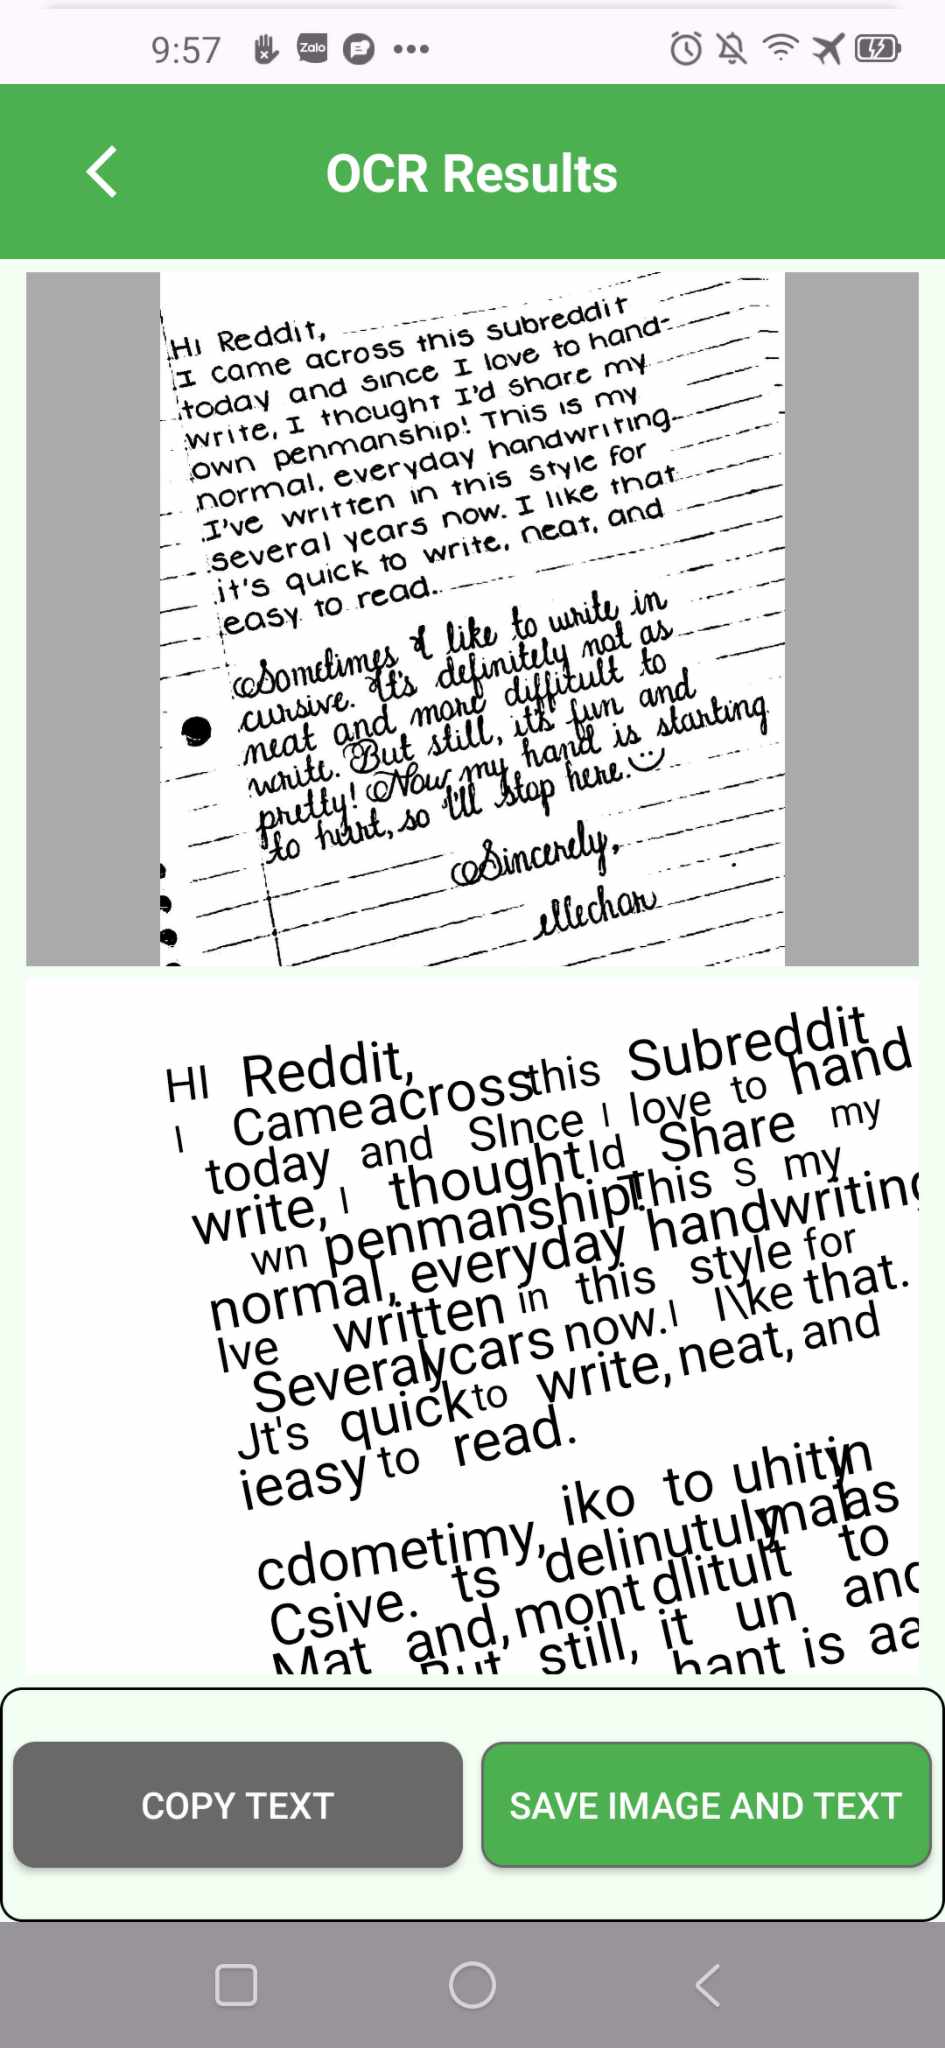 9:57
Zalo
OCR Results
Hi Reddit,
I came across this subreddit
today and since I love to hand-
write, I thought I'd share my
own penmanship! This is my
normal, everyday handwriting.
I've written in this style for
several years now. I like that
it's quick to write, neat, and
easy to read.
Sometimes I like to write in
cursive. It's definitely not as
neat and more difficult to
write. But still, it's fun and
pretty! Now my hand is starting
to hurt, so I'll stop here.
Sincerely,
ellechan
HI Reddit,
I Came across this Subreddit
today and SInce I love to hand
write, I thought Id Share my
wn penmanship! This S my
normal, everyday handwriting
Ive written in this style for
Several ycars now. I I\ke that.
Jt's quick to write, neat, and
ieasy to read.
cdometimy, iko to uhity in
Csive. ts delinutuly mal as
Mat and, mont dlitult to
But still, it un and
hant is aa
COPY TEXT
SAVE IMAGE AND TEXT